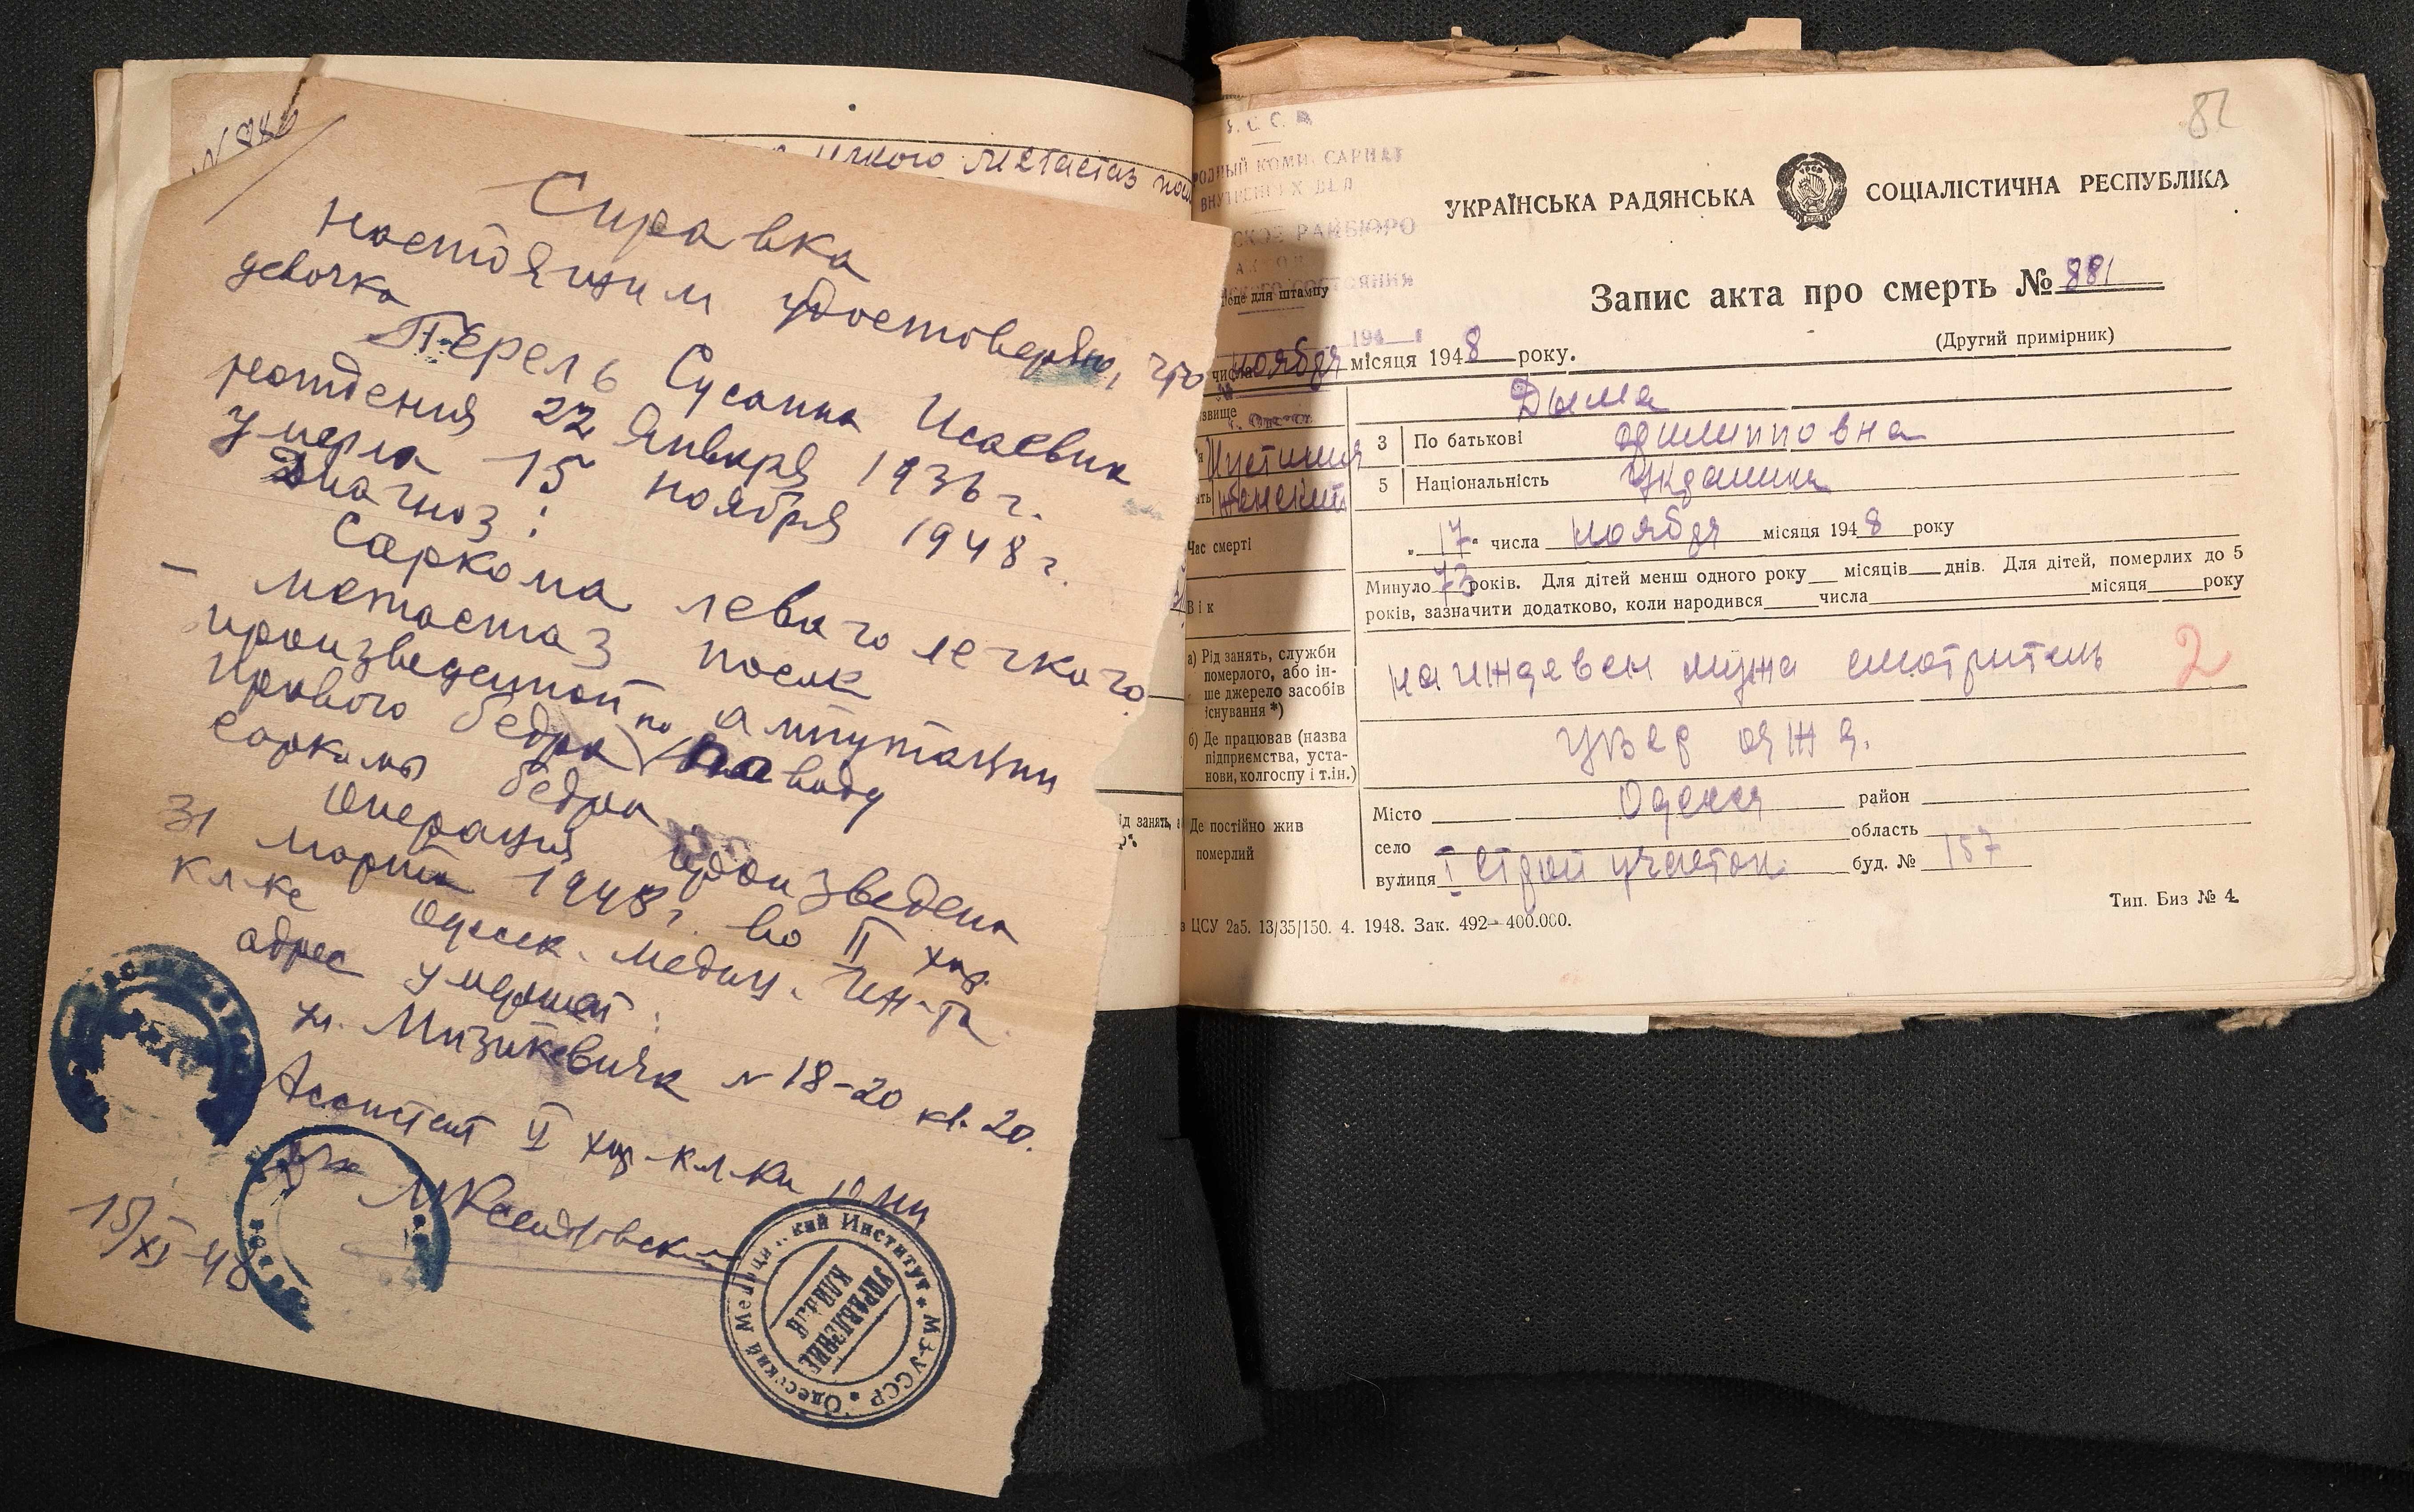 N 880
легкого метастаз
Справка
Настоящим удостоверяю, что
девочка
Перель Сусанна Исаевна
рождения 22 января 1936 г.
умерла 15 ноября 1948 г.
Диагноз:
Саркома левого легкого
– метастаз после
произведенной ампутации
правого бедра по поводу
саркомы бедра
Операция произведена
31 марта 1948 г. во II хир.
кл-ке Одесск. Медиц. Ин-та
адрес умершей:
ул. Мизикевича N 18-20 кв. 20.
Ассистент II хир. кл-ки ОМИ
15/XI-48
Одесский Медицинский Институт * МЗ-УССР *
УПРАВЛЕНИЕ
КЛИНИК
82
У.С.С.Р.
РОДНЫЙ КОМИССАРИАТ
ВНУТРЕННИХ ДЕЛ
СКОЕ РАЙБЮРО
АКТОВ
СОСТОЯНИЯ
Місце для штампу
УКРАЇНСЬКА РАДЯНСЬКА СОЦІАЛІСТИЧНА РЕСПУБЛІКА
УРСР
Запис акта про смерть № 881
(Другий примірник)
числа ноября місяця 1948 року.
звище Дыма
Иустиния 3 По батькові Филипповна
женский 5 Національність Украинка
Час смерті „17“ числа ноября місяця 1948 року
Вік Минуло 73 років. Для дітей менш одного року місяців днів. Для дітей, померлих до 5
років, зазначити додатково, коли народився числа місяця року
а) Рід занять, служби
померлого, або ін-
ше джерело засобів
існування *)
на иждевен мужа смотритель
2
б) Де працював (назва
підприємства, уста-
нови, колгоспу і т.ін.)
Де постійно жив
померлий
Місто Одесса район
село область
вулиця I строй участок буд. № 157
Тип. Биз № 4
з ЦСУ 2а5. 13/35/150. 4. 1948. Зак. 492—400.000.